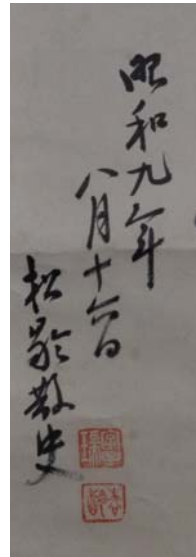 昭和九年
八月十六日
松齡散史